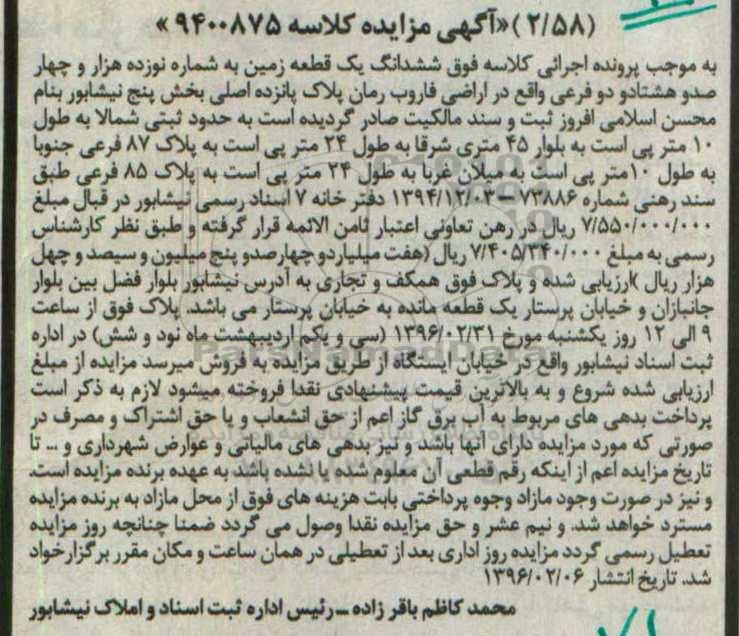 (۲/۵۸) «آگهی مزایده کلاسه ۹۴۰۰۸۷۵»
به موجب پرونده اجرائی کلاسه فوق ششدانگ یک قطعه زمین به شماره نوزده هزار و چهار
صدو هشتادو دو فرعی واقع در اراضی فاروب رمان پلاک پانزده اصلی بخش پنج نیشابور بنام
محسن اسلامی افروز ثبت و سند مالکیت صادر گردیده است به حدود ثبتی شمالا به طول
۱۰ متر پی است به بلوار ۴۵ متری شرقا به طول ۲۴ متر پی است به پلاک ۸۷ فرعی جنوبا
به طول ۱۰متر پی است به میلان غربا به طول ۲۴ متر پی است به پلاک ۸۵ فرعی طبق
سند رهنی شماره ۷۳۸۸۶-۱۳۹۴/۱۲/۰۳ دفتر خانه ۷ اسناد رسمی نیشابور در قبال مبلغ
۷/۵۵۰/۰۰۰/۰۰۰ ریال در رهن تعاونی اعتبار ثامن الائمه قرار گرفته و طبق نظر کارشناس
رسمی به مبلغ ۷/۴۰۵/۳۴۰/۰۰۰ ریال (هفت میلیاردو چهارصدو پنج میلیون و سیصد و چهل
هزار ریال )ارزیابی شده و پلاک فوق همکف و تجاری به آدرس نیشابور بلوار فضل بین بلوار
جانبازان و خیابان پرستار یک قطعه مانده به خیابان پرستار می باشد. پلاک فوق از ساعت
۹ الی ۱۲ روز یکشنبه مورخ ۱۳۹۶/۰۲/۳۱ (سی و یکم اردیبهشت ماه نود و شش) در اداره
ثبت اسناد نیشابور واقع در خیابان ایستگاه از طریق مزایده به فروش میرسد مزایده از مبلغ
ارزیابی شده شروع و به بالاترین قیمت پیشنهادی نقدا فروخته میشود لازم به ذکر است
پرداخت بدهی های مربوط به آب برق گاز اعم از حق انشعاب و یا حق اشتراک و مصرف در
صورتی که مورد مزایده دارای آنها باشد و نیز بدهی های مالیاتی و عوارض شهرداری و ... تا
تاریخ مزایده اعم از اینکه رقم قطعی آن معلوم شده یا نشده باشد به عهده برنده مزایده است.
و نیز در صورت وجود مازاد وجوه پرداختی بابت هزینه های فوق از محل مازاد به برنده مزایده
مسترد خواهد شد. و نیم عشر و حق مزایده نقدا وصول می گردد ضمنا چنانچه روز مزایده
تعطیل رسمی گردد مزایده روز اداری بعد از تعطیلی در همان ساعت و مکان مقرر برگزارخواد
شد. تاریخ انتشار ۱۳۹۶/۰۲/۰۶
محمد کاظم باقر زاده _رئیس اداره ثبت اسناد و املاک نیشابور
ParsNamadData